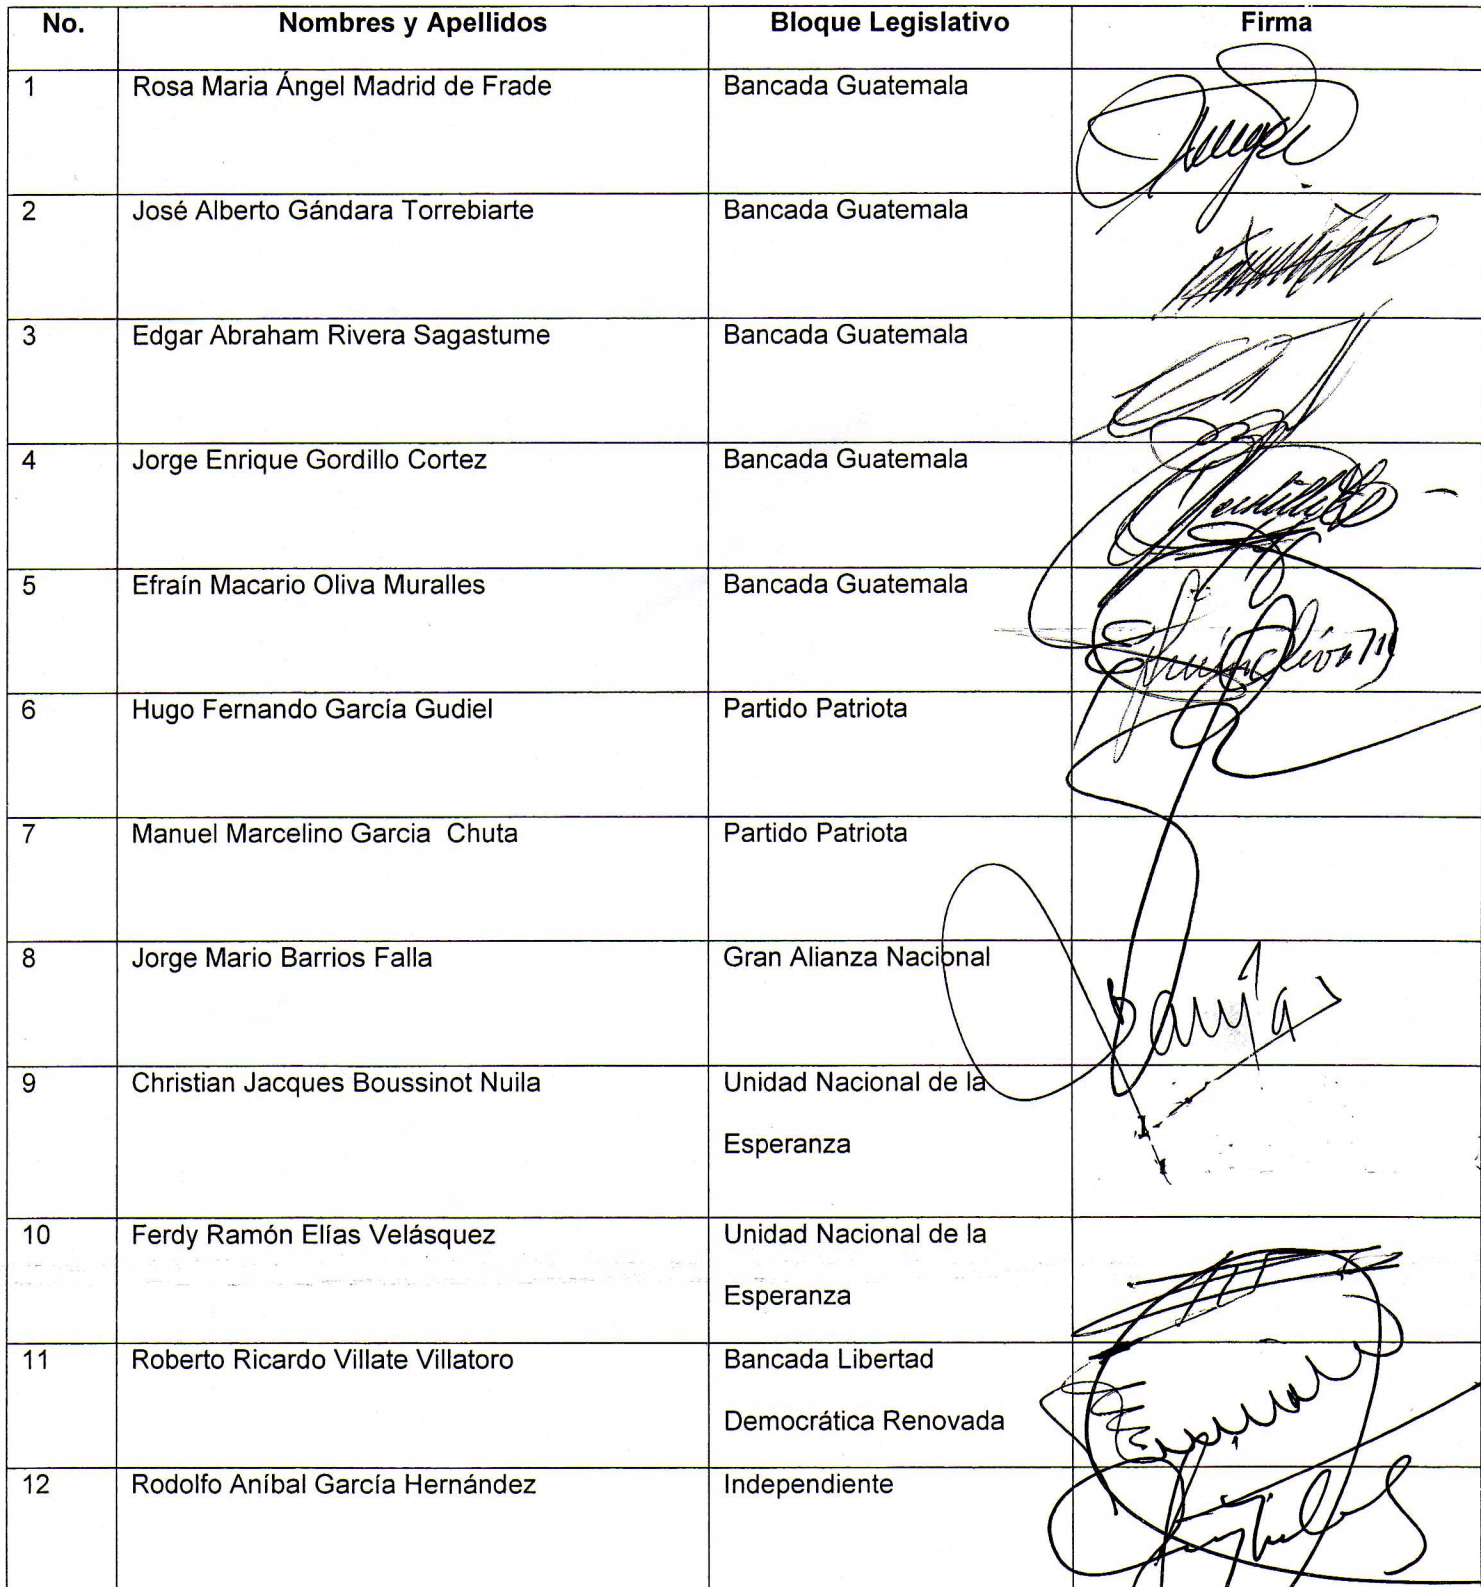 No. Nombres y Apellidos Bloque Legislativo Firma
1 Rosa Maria Ángel Madrid de Frade Bancada Guatemala
2 José Alberto Gándara Torrebiarte Bancada Guatemala
3 Edgar Abraham Rivera Sagastume Bancada Guatemala
4 Jorge Enrique Gordillo Cortez Bancada Guatemala
5 Efraín Macario Oliva Muralles Bancada Guatemala
6 Hugo Fernando García Gudiel Partido Patriota
7 Manuel Marcelino Garcia Chuta Partido Patriota
8 Jorge Mario Barrios Falla Gran Alianza Nacional
9 Christian Jacques Boussinot Nuila Unidad Nacional de la
Esperanza
10 Ferdy Ramón Elías Velásquez Unidad Nacional de la
Esperanza
11 Roberto Ricardo Villate Villatoro Bancada Libertad
Democrática Renovada
12 Rodolfo Aníbal García Hernández Independiente